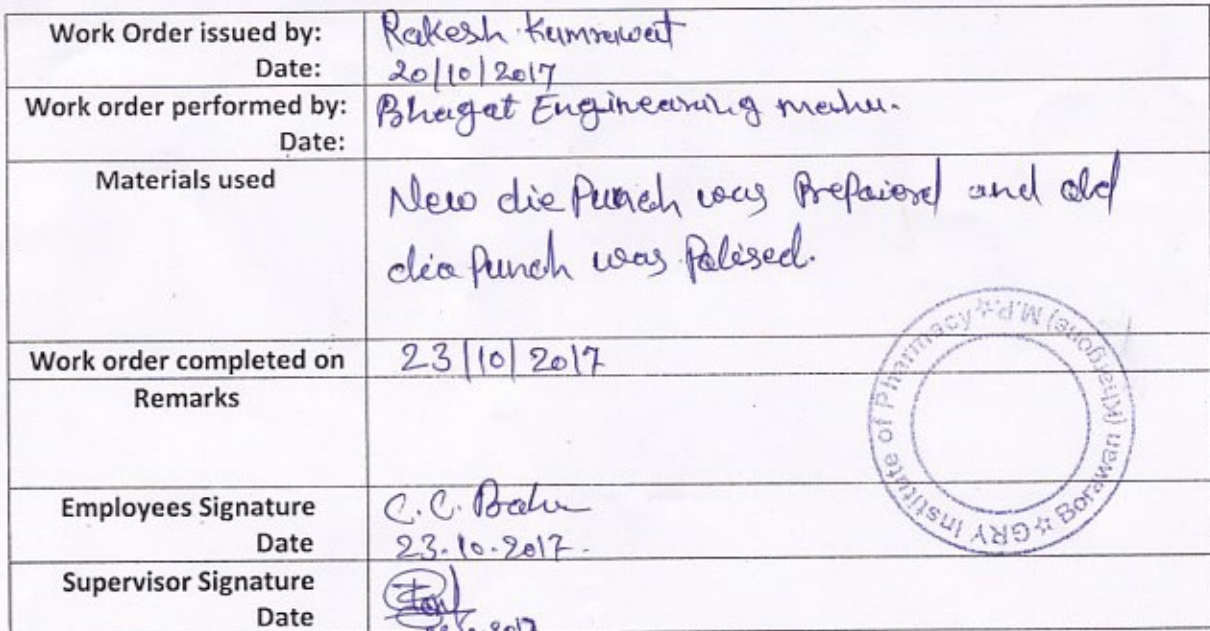 Work Order issued by: Rakesh Kumrawat
Date: 20/10/2017
Work order performed by: Bhagat Engineearing mehu.
Date:
Materials used New die Punch was Prepaierd and old
die Punch was Polised.
Work order completed on 23/10/2017
Remarks
Employees Signature C.C. Badu
Date 23.10.2017.
Supervisor Signature
Date
GRY Institute of Pharmacy ☆ Borawan (Khargone) M.P. ☆